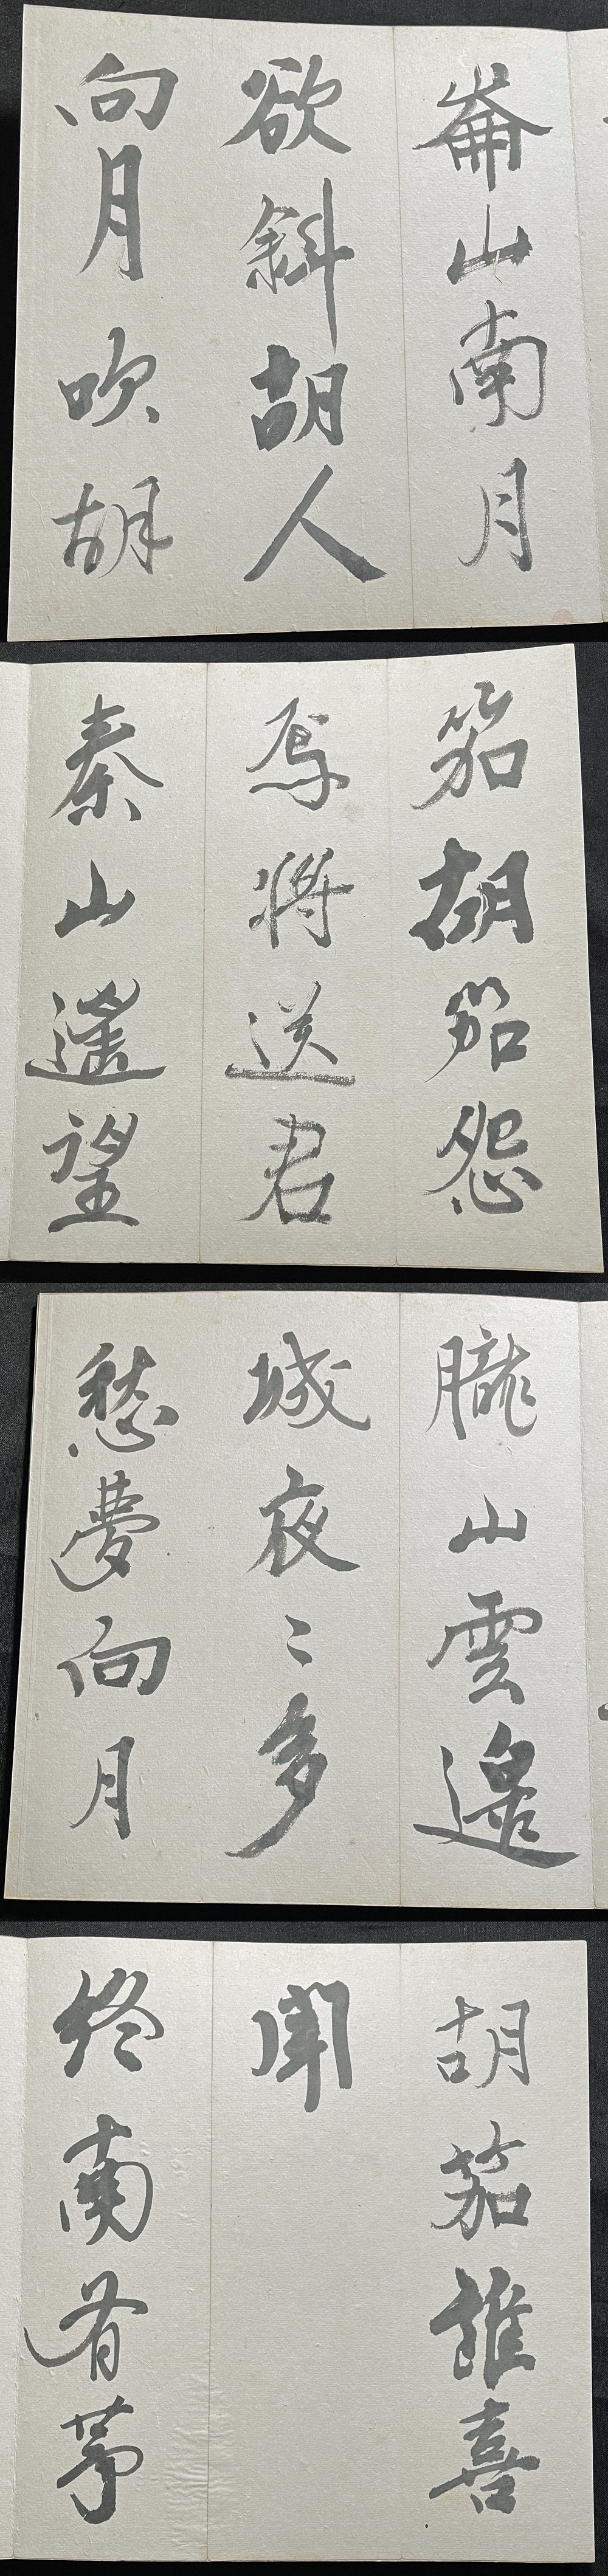 崙山南月
欲斜胡人
向月吹胡
笳胡笳怨
兮將送君
秦山遙望
隴山雲邊
城夜〻多
愁夢向月
胡笳誰喜
聞
終南有茅